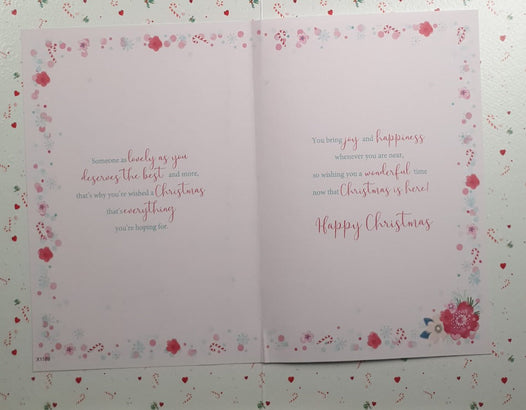 Someone as lovely as you
deserves the best and more,
that's why you're wished a Christmas
that's everything
you're hoping for.
You bring joy and happiness
whenever you are near,
so wishing you a wonderful time
now that Christmas is here!
Happy Christmas